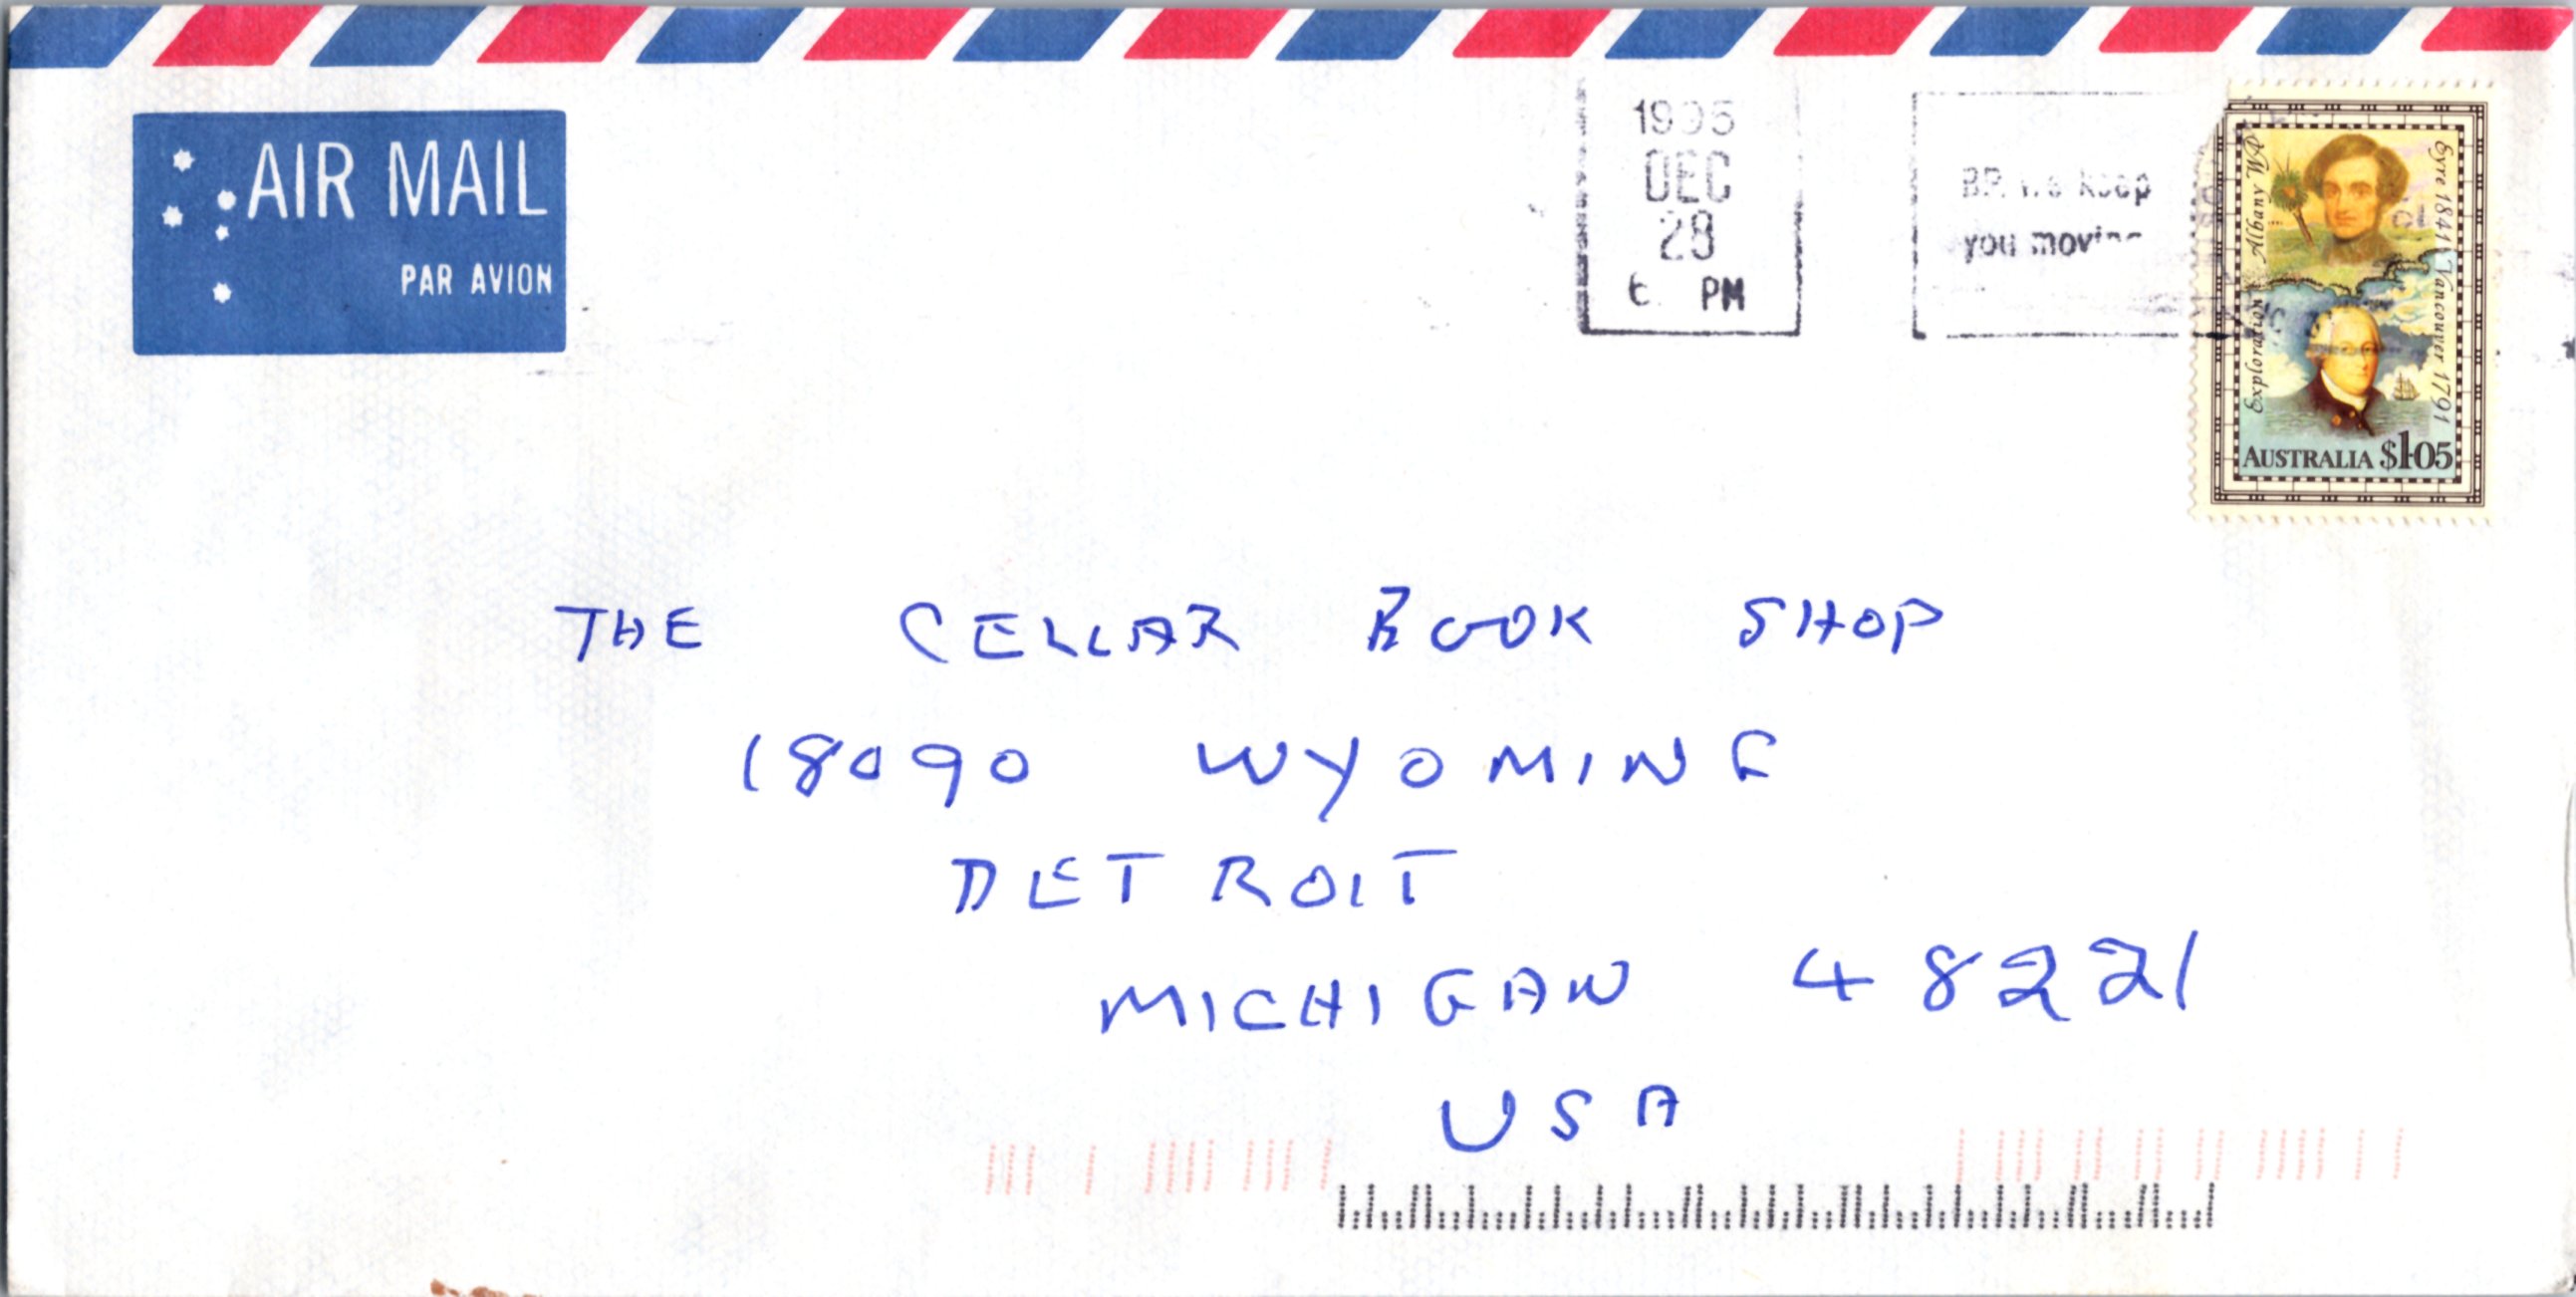 AIR MAIL
PAR AVION
1995
DEC
28
PM
BP. we keep
you moving
Eyre 1841 Vancouver 1791
Exploration Albany WA
AUSTRALIA $1.05
THE CELLAR BOOK SHOP
18090 WYOMING
DETROIT
MICHIGAN 48221
USA